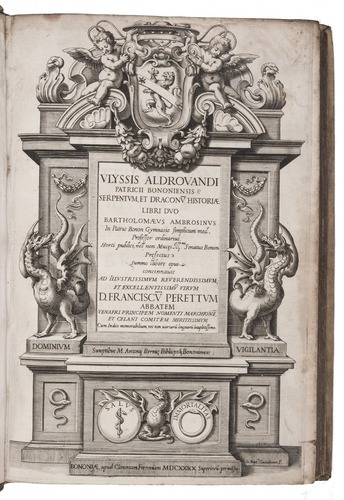 VLYSSIS ALDROVANDI
PATRICII BONONIENSIS
SERPENTVM, ET DRACONV̄ HISTORIÆ
LIBRI DVO
BARTHOLOMÆVS AMBROSINVS
In Patrio Bonon Gymnasio simplicium med.
Professor ordinarius
Horti publici, nec non Musei Ill. Senatus Bonon
Præfectus
summo labore opus
concinnauit
AD ILLVSTRISSIMVM REVERENDISSIMVM
ET EXCELLENTISSIMV̄ VIRVM
D. FRANCISCV̄ PERETTVM
ABBATEM
VENAFRI PRINCIPEM NOMENTI MARCHIONE
ET CELANI COMITEM MERITISSIMVM
Cum Indice memorabilium nec non variarū linguarū
DOMINIVM
VIGILANTIA
Sumptibus M. Antonij Berniæ Bibliopolæ Bononiensis
SALVS
IMMORTALITAS
BONONIÆ, apud Clementem Ferronium MDCXXXX Superiorū permissu